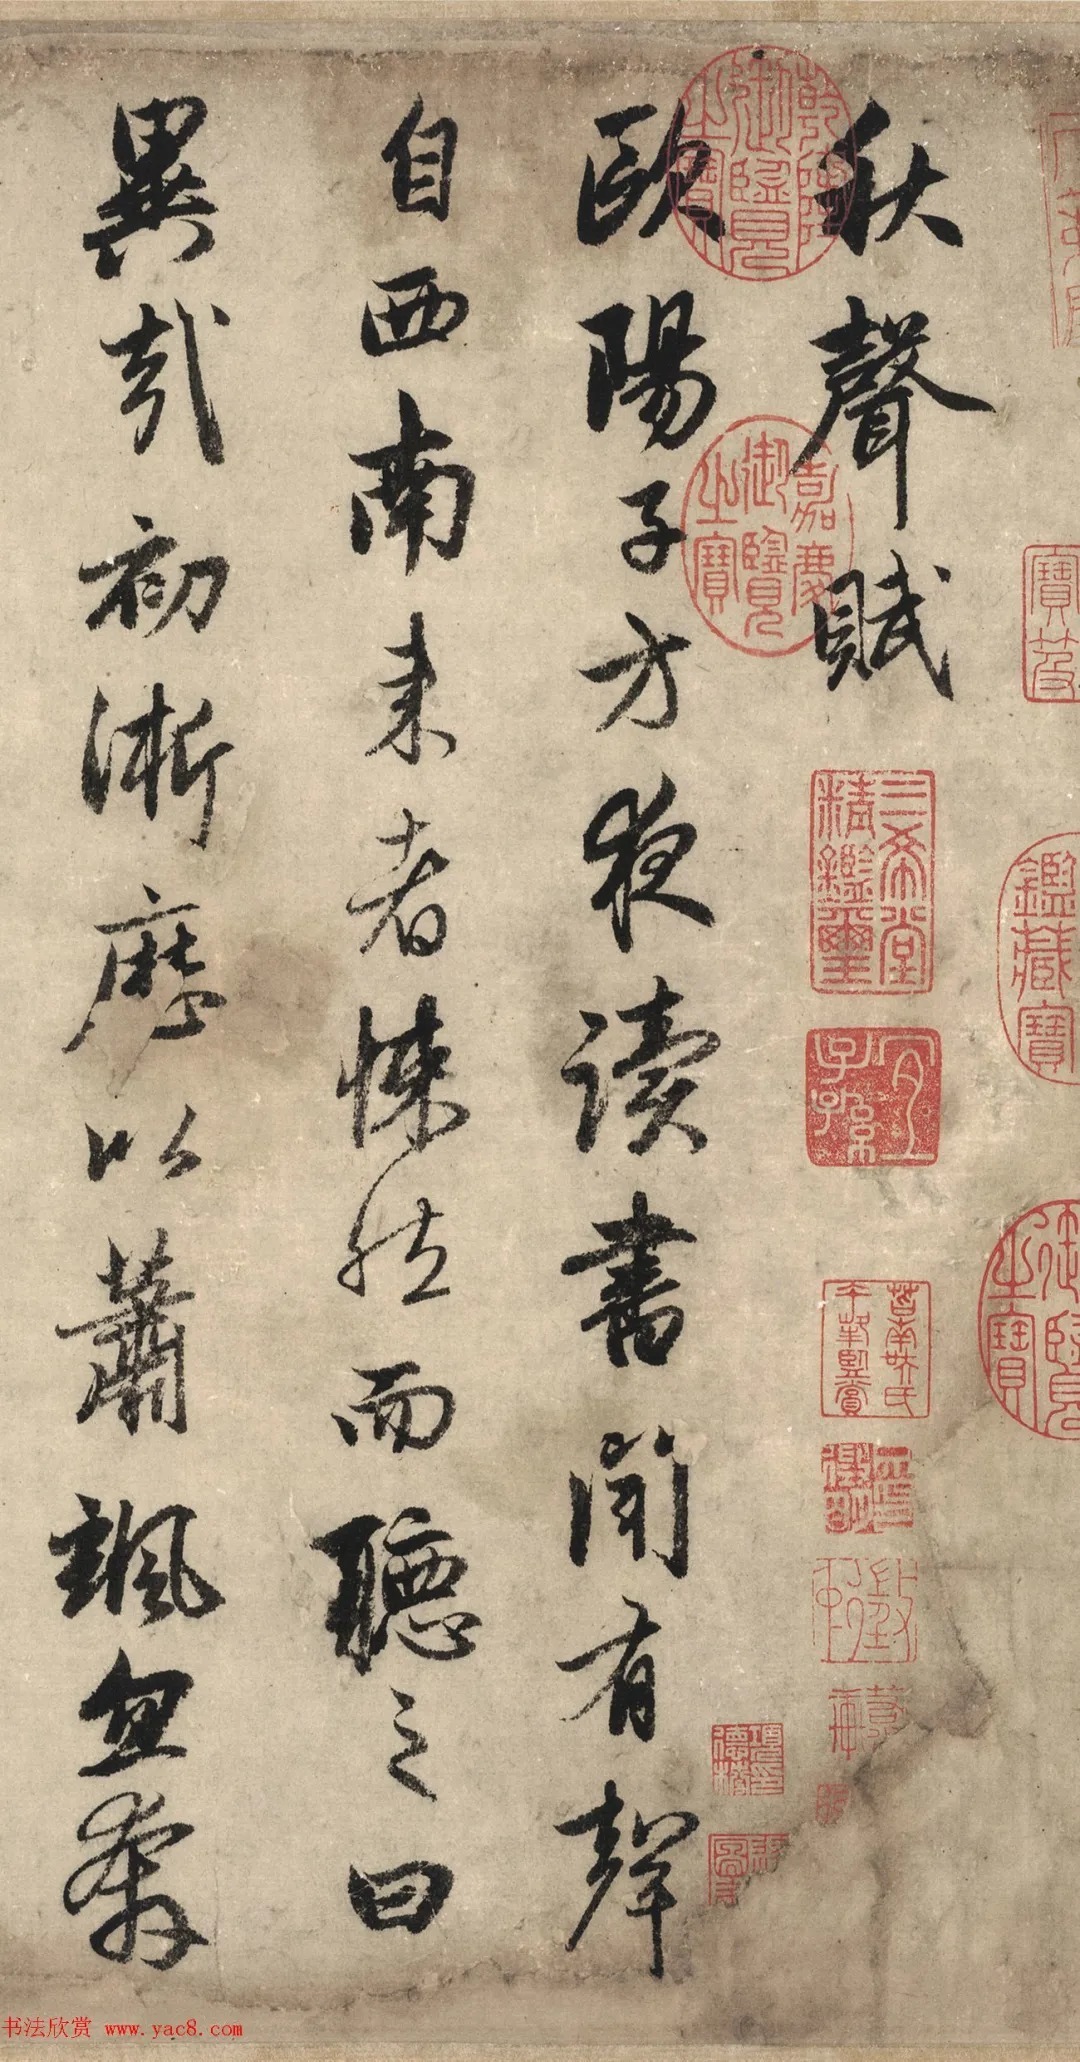 秋聲賦
歐陽子方夜讀書聞有聲
自西南來者悚然而聽之曰
異哉初淅歷以蕭颯忽奔
乾隆御覽之寶
嘉慶御覽之寶
三希堂精鑑璽
宜子孫
寶笈
鑑藏寶
御覽之寶
书法欣赏 www.yac8.com